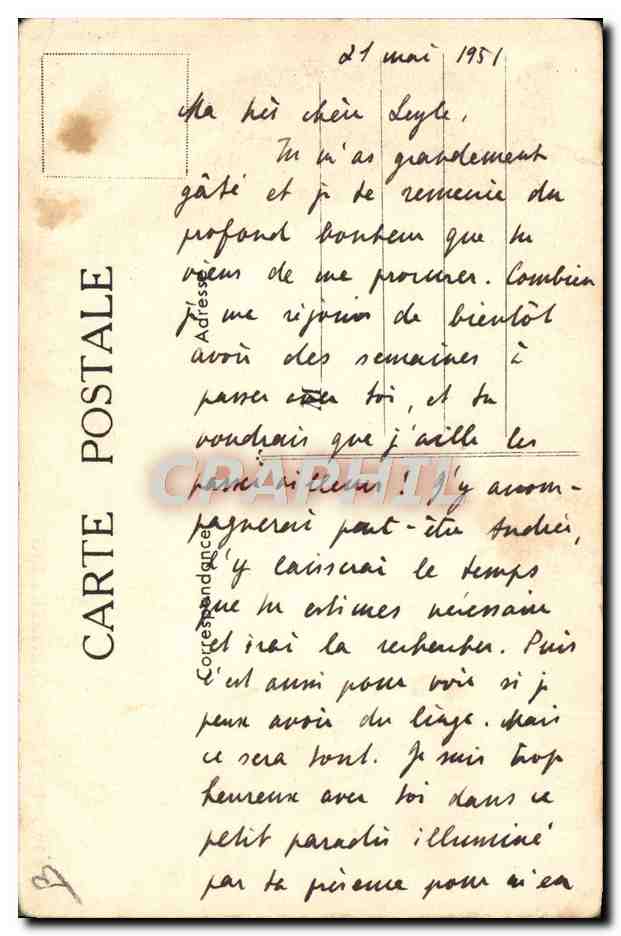 21 mai 1951
Ma très chère Leyle,
Tu m'as grandement
gâté et je te remercie du
profond bonheur que tu
viens de me procurer. Combien
je me réjouis de bientôt
avoir des semaines à
passer avec toi, et tu
voudrais que j'aille les
passer ailleurs ! J'y accom-
pagnerai peut-être Andrée,
l'y laisserai le temps
que tu estimes nécessaire
et irai la rechercher. Puis
c'est aussi pour voir si je
peux avoir du linge. Mais
ce sera tout. Je suis trop
heureux avec toi dans ce
petit paradis illuminé
par ta présence pour m'en
CARTE POSTALE
Adresse
Correspondance
CPAPHIL